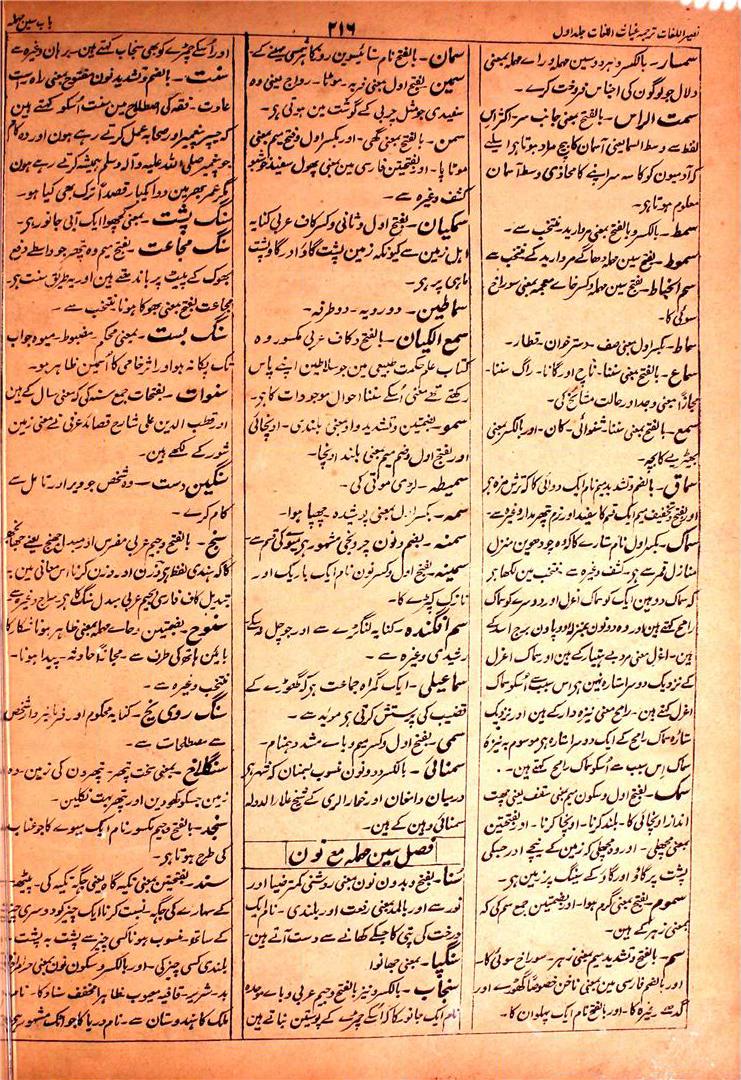 نصیر اللغات ترجمہ غیاث اللغات جلد اول
۲۱۶
باب سین مہملہ
سمسار۔ بالکسر و ہر دو سین مہملہ و راے مہملہ بمعنی
دلال جو لوگون کی اجناس فروخت کرے۔
سمت الراس۔ بالفتح بمعنی جانب سر۔ اکثر اس
لفظ سے وسط السما یعنی آسمان کا بیچ مراد ہوتا ہی اسلیے
کہ آدمیون کو کاسہ سر اپنے کا محاذی وسط آسمان
معلوم ہوتا ہی۔
سمط۔ بالکسر و بالفتح بمعنی مروارید منتخب سے۔
سموط۔ بفتح سین مہملہ دھاگے مروارید کے منتخب سے
سم الخیاط۔ بفتح سین مہملہ و کسر خاے معجمہ بمعنی سوراخ
سوئی کا۔
سماط۔ بکسر اول بمعنی صف۔ دسترخوان۔ قطار۔
سماع۔ بالفتح بمعنی سننا۔ ناچ اور گانا۔ راگ سننا۔
مجازاً بمعنی وجد اور حالت مشائخ کی۔
سمع۔ بالفتح بمعنی سننا۔ شنوائی۔ کان۔ اور بالکسر بمعنی
بھیڑیے کا بچہ۔
سماق۔ بالضم و تشدید میم نام ایک دوائی کا کہ ترش مزہ ہی
اور بفتح و تخفیف میم ایک قسم کا سفید اور نرم پتھر مدار وغیرہ سے۔
سماک۔ بکسر اول نام ستارے کا کہ وہ چودھوین منزل
منازل قمر سے ہی۔ کشف وغیرہ سے منتخب مین لکھا ہی
کہ سماک دو ہین ایک کو سماک اعزل اور دوسرے کو سماک
رامح کہتے ہین اور وہ دونون بمنزلہ دو پاون برج اسد کے
ہین۔ اعزل بمعنی مرد بے ہتیار کے ہین اور سماک اعزل
کے نزدیک دوسرا ستارہ نہین ہی اس سبب سے اُسکو سماک
اعزل کہتے ہین۔ رامح بمعنی نیزہ دار کے ہین اور نزدیک
ستارہ سماک رامح کے ایک دوسرا ستارہ ہی موسوم بہ نیزۂ
سماک اِس سبب سے اُسکو سماک رامح کہتے ہین۔
سمک۔ بفتح اول و سکون میم بمعنی سقف یعنی چھت
انداز اونچائی کا۔ بلند کرنا۔ اونچا کرنا۔ اور بفتحتین
بمعنی مچھلی۔ اور وہ مچھلی کہ زمین کے نیچے اور جسکی
پشت پر گاؤ اور گاؤ کے سینگ پر زمین ہی۔
سموم۔ بالفتح بمعنی گرم ہوا۔ اور بضمتین جمع سم کی کہ
بمعنی زہر کے ہین۔
سم۔ بالفتح و تشدید میم بمعنی زہر۔ سوراخ سوئی کا۔
اور بالضم فارسی مین بمعنی ناخن خصوصاً گھوڑے اور
گدھے وغیرہ کا۔ اور بالفتح نام ایک پہلوان کا۔
سمان۔ بالفتح نام ستائیسوین روز کا ہر شمسی مہینے کے۔
سمین۔ بفتح اول بمعنی فربہ۔ موٹا۔ رواج یعنی وہ
سفیدی جو مثل چربی کے گوشت مین ہوتی ہی۔
سمن۔ بالفتح بمعنی گھی۔ اور بکسر اول و فتح میم بمعنی
موٹاپا۔ اور بفتحتین فارسی مین بمعنی پھول سفید خوشبو
کشف وغیرہ سے۔
سمکیان۔ بفتح اول و ثانی و کسر کاف عربی کنایہ
اہل زمین سے کیونکہ زمین پشت گاؤ اور گاؤ پشت
ماہی پر ہی۔
سماطین۔ دو رویہ۔ دو طرفہ۔
سمع الکیان۔ بالفتح و کاف عربی مکسور وہ
کتاب علم حکمت طبیعی مین جو سلاطین اپنے پاس
رکھتے تھے معنی اُسکے سننا احوال موجودات کا ہی۔
سمو۔ بضمتین و تشدید واو بمعنی بلندی۔ اونچائی
اور بفتح اول و ضم میم بمعنی بلند اونچا۔
سمیطہ۔ لڑی موتی کی۔
سمہ۔ بکسر اول بمعنی پوشیدہ چھپا ہوا۔
سمنہ۔ بضم و نون چرونجی مشہور ہی میوہ کی قسم سے۔
سمینہ۔ بفتح اول و کسر نون نام ایک باریک اور
نازک کپڑے کا۔
سم افگندہ۔ کنایہ لنگڑے سے اور جو چل نہ سکے
رشیدی وغیرہ سے۔
سماعیلی۔ ایک گمراہ جماعت ہی کہ گھوڑے کے
قضیب کی پرستش کرتی ہی موید سے۔
سمی۔ بفتح اول و کسر میم و یاے مشدد ہمنام۔
سمنائی۔ بالکسر و دو نون منسوب بسمنان کہ شہر ہی
درمیان دامغان اور خوار الری کے شیخ علاء الدولہ
سمنائی وہین کے ہین۔
فصل سین مہملہ مع نون
سنا۔ بفتح و بدون نون بمعنی روشنی کمتر ضیا اور
نور سے اور بالمد بمعنی رفعت اور بلندی۔ نام ایک
درخت کی پتی کا جسکے کھانے سے دست آتے ہین۔
سنگپا۔ بمعنی جھانوا
سنجاب۔ بالکسر و نیز بالفتح و جیم عربی و باے موحدہ
نام ایک جانور کا کہ اُسکے چمڑے کے پوستین بناتے ہین
اور اُسکے چمڑے کو بھی سنجاب کہتے ہین۔ برہان وغیرہ سے
سنت۔ بالضم و تشدید نون مفتوح بمعنی راہ راست
عادت۔ فقہ کی اصطلاح مین سنت اُسکو کہتے ہین
کہ جسپر پیغمبر اور صحابہ عمل کرتے رہے ہون اور وہ کام
جو پیغمبر صلی اللہ علیہ و آلہ وسلم ہمیشہ کرتے رہے ہون
مگر عمر بھر مین دوا یکبار قصداً ترک بھی کیا ہو۔
سنگ پشت۔ بمعنی کچھوا ایک آبی جانور ہی۔
سنگ مجاعت۔ بفتح میم وہ پتھر جو واسطے دفع
بھوک کے پیٹ پر باندھتے ہین اور یہ طریق سنت ہی۔
مجاعت بفتح بمعنی بھوکا ہونا منتخب سے۔
سنگ بست۔ بمعنی محکم۔ مضبوط۔ میوہ جو اب
تک پکا نہ ہو اور اثر خامی کا اُسمین ظاہر ہو۔
سنوات۔ بفتحات جمع سنہ کی کہ معنی سال کے ہین
اور قطب الدین علی شارح قصائد عرفی نے معنی زمین
شور کے لکھے ہین۔
سنگین دست۔ وہ شخص جو دیر اور تامل سے
کام کرے۔
سنج۔ بالفتح و جیم عربی مفرس اور مبدل جھنج یعنے جھانجھ
کا کہ ہندی لفظ ہی و وزن اور وزن کرنا اس معانی مین بہ
تبدیل کاف فارسی بجیم عربی مبدل سنگ کا ہی سراج وغیرہ سے
سنوح۔ بضمتین و حاے مہملہ بمعنی ظاہر ہونا شکار کا
بائین ہاتھ کی طرف سے۔ مجازاً حادثہ۔ پیدا ہونا۔
منتخب وغیرہ سے۔
سنگ روی یخ۔ کنایہ محکوم اور فرمانبردار شخص
سے مصطلحات سے۔
سنگلاخ۔ بمعنی سخت پتھر۔ پتھرون کی زمین۔ وہ
زمین جسکو کھودین اور پتھر بہت نکلین۔
سنجد۔ بالفتح و جیم مکسور نام ایک میوے کا جو عناب
کی طرح ہوتا ہی۔
سند۔ بفتحتین بمعنی تکیہ گاہ یعنی جگہ تکیہ کی۔ پیٹھ
کے سہارے کی جگہ۔ نسبت کرنا ایک چیز کو دوسری چیز
کے ساتھ۔ منسوب ہونا کسی چیز سے پشت بہ پشت۔
بلندی کسی چیز کی۔ اور بالکسر و سکون نون بمعنی حرامزادہ
بد۔ شریر۔ قافیہ معیوب ظاہرا مخفف سناد کا۔ نام
ملک کا ہندوستان سے۔ نام دریا کا جو اٹک مشہور ہی